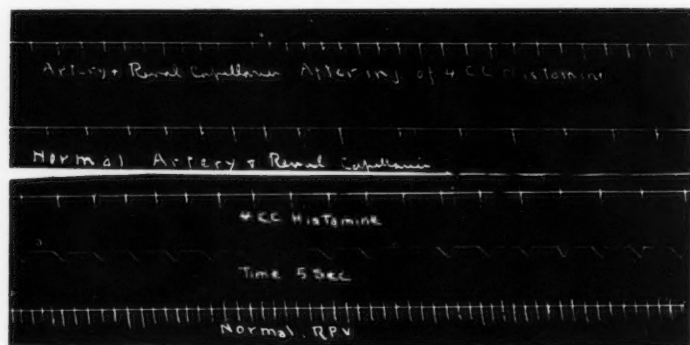 Artery & Renal Capillaries After inj of 4 CC Histamine
Normal Artery & Renal Capillaries
4 CC Histamine
Time 5 Sec
Normal RPV